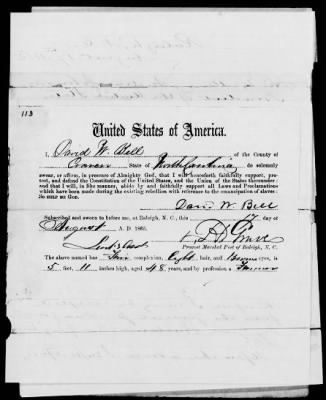 113
United States of America.
I, David W. Bell of the County of
Craven State of North Carolina do solemnly
swear, or affirm, in presence of Almighty God, that I will henceforth, faithfully support, pro-
tect, and defend the Constitution of the United States, and the Union of the States thereunder;
and that I will, in like manner, abide by and faithfully support all Laws and Proclamations
which have been made during the existing rebellion with reference to the emancipation of slaves:
So HELP ME GOD.
David W Bell
Subscribed and sworn to before me, at Raleigh, N. C., this 17 day of
August A. D. 1865.
Provost Marshal Post of Raleigh, N. C.
The above named has Fair complexion, Light hair, and Brown eyes, is
5 feet, 11 inches high, aged 48 years, and by profession a Farmer